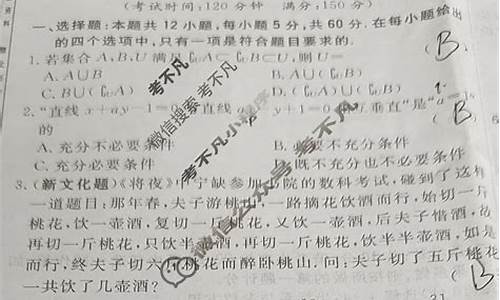 (考试时间:120分钟 满分:150分)
一、选择题:本题共12小题,每小题5分,共60分.在每小题给出
的四个选项中,只有一项是符合题目要求的.
1.若集合A,B,U满足 ∁UA⊂∁UB⊂U,则U= (B.
A.A∪B B.A∪(∁UB)
C.B∪(∁UA) D.(∁UA)∪(∁UB)
2.“直线x+ay-1=0 直线 y+1=0 互垂直”是“a=
的 (B)
A.充分不必要条件 B.必要不充分条件
C.充分必要条件 D.既不充分也不必要条件
3.(新文化题)《将夜》中宁缺参加书院的数科考试,碰到了这样
一道题目:那年春,夫子游桃山,一路摘花饮酒而行,始切一斤
桃花,饮一壶酒,复切一斤桃花,又饮一壶酒,后夫子惜酒,故
再切一斤桃花,只饮半壶酒,再切一斤桃花,饮半半壶酒,如是
而行,终夫子切六 桃花而醉卧桃山.问:夫子切了五斤桃花
一共饮了几壶酒? (B
考不凡
微信搜索 考不凡
考不凡小程序
微信公众号 考不凡